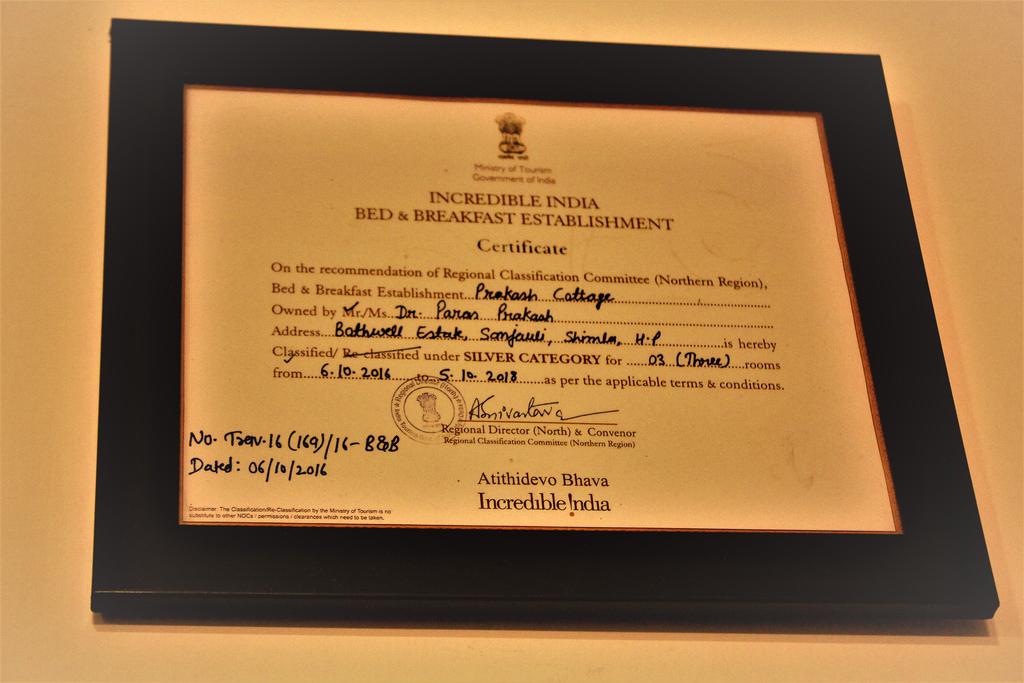 Ministry of Tourism
Government of India
INCREDIBLE INDIA
BED & BREAKFAST ESTABLISHMENT
Certificate
On the recommendation of Regional Classification Committee (Northern Region),
Bed & Breakfast Establishment...Prakash Cottage
Owned by Mr./Ms. Dr. Paras Prakash
Address...Bothwell Estate, Sanjauli, Shimla, H.P...is hereby
Classified/ Re-classified under SILVER CATEGORY for ...03 (Three)...rooms
from...6.10.2016...to...5.10.2018...as per the applicable terms & conditions.
Regional Director (North) & Convenor
Regional Classification Committee (Northern Region)
No. Tserv.16 (169)/16-B&B
Dated: 06/10/2016
Atithidevo Bhava
Incredible !ndia
Disclaimer: The Classification/Re-Classification by the Ministry of Tourism is no
substitute to other NOCs / permissions / clearances which need to be taken.